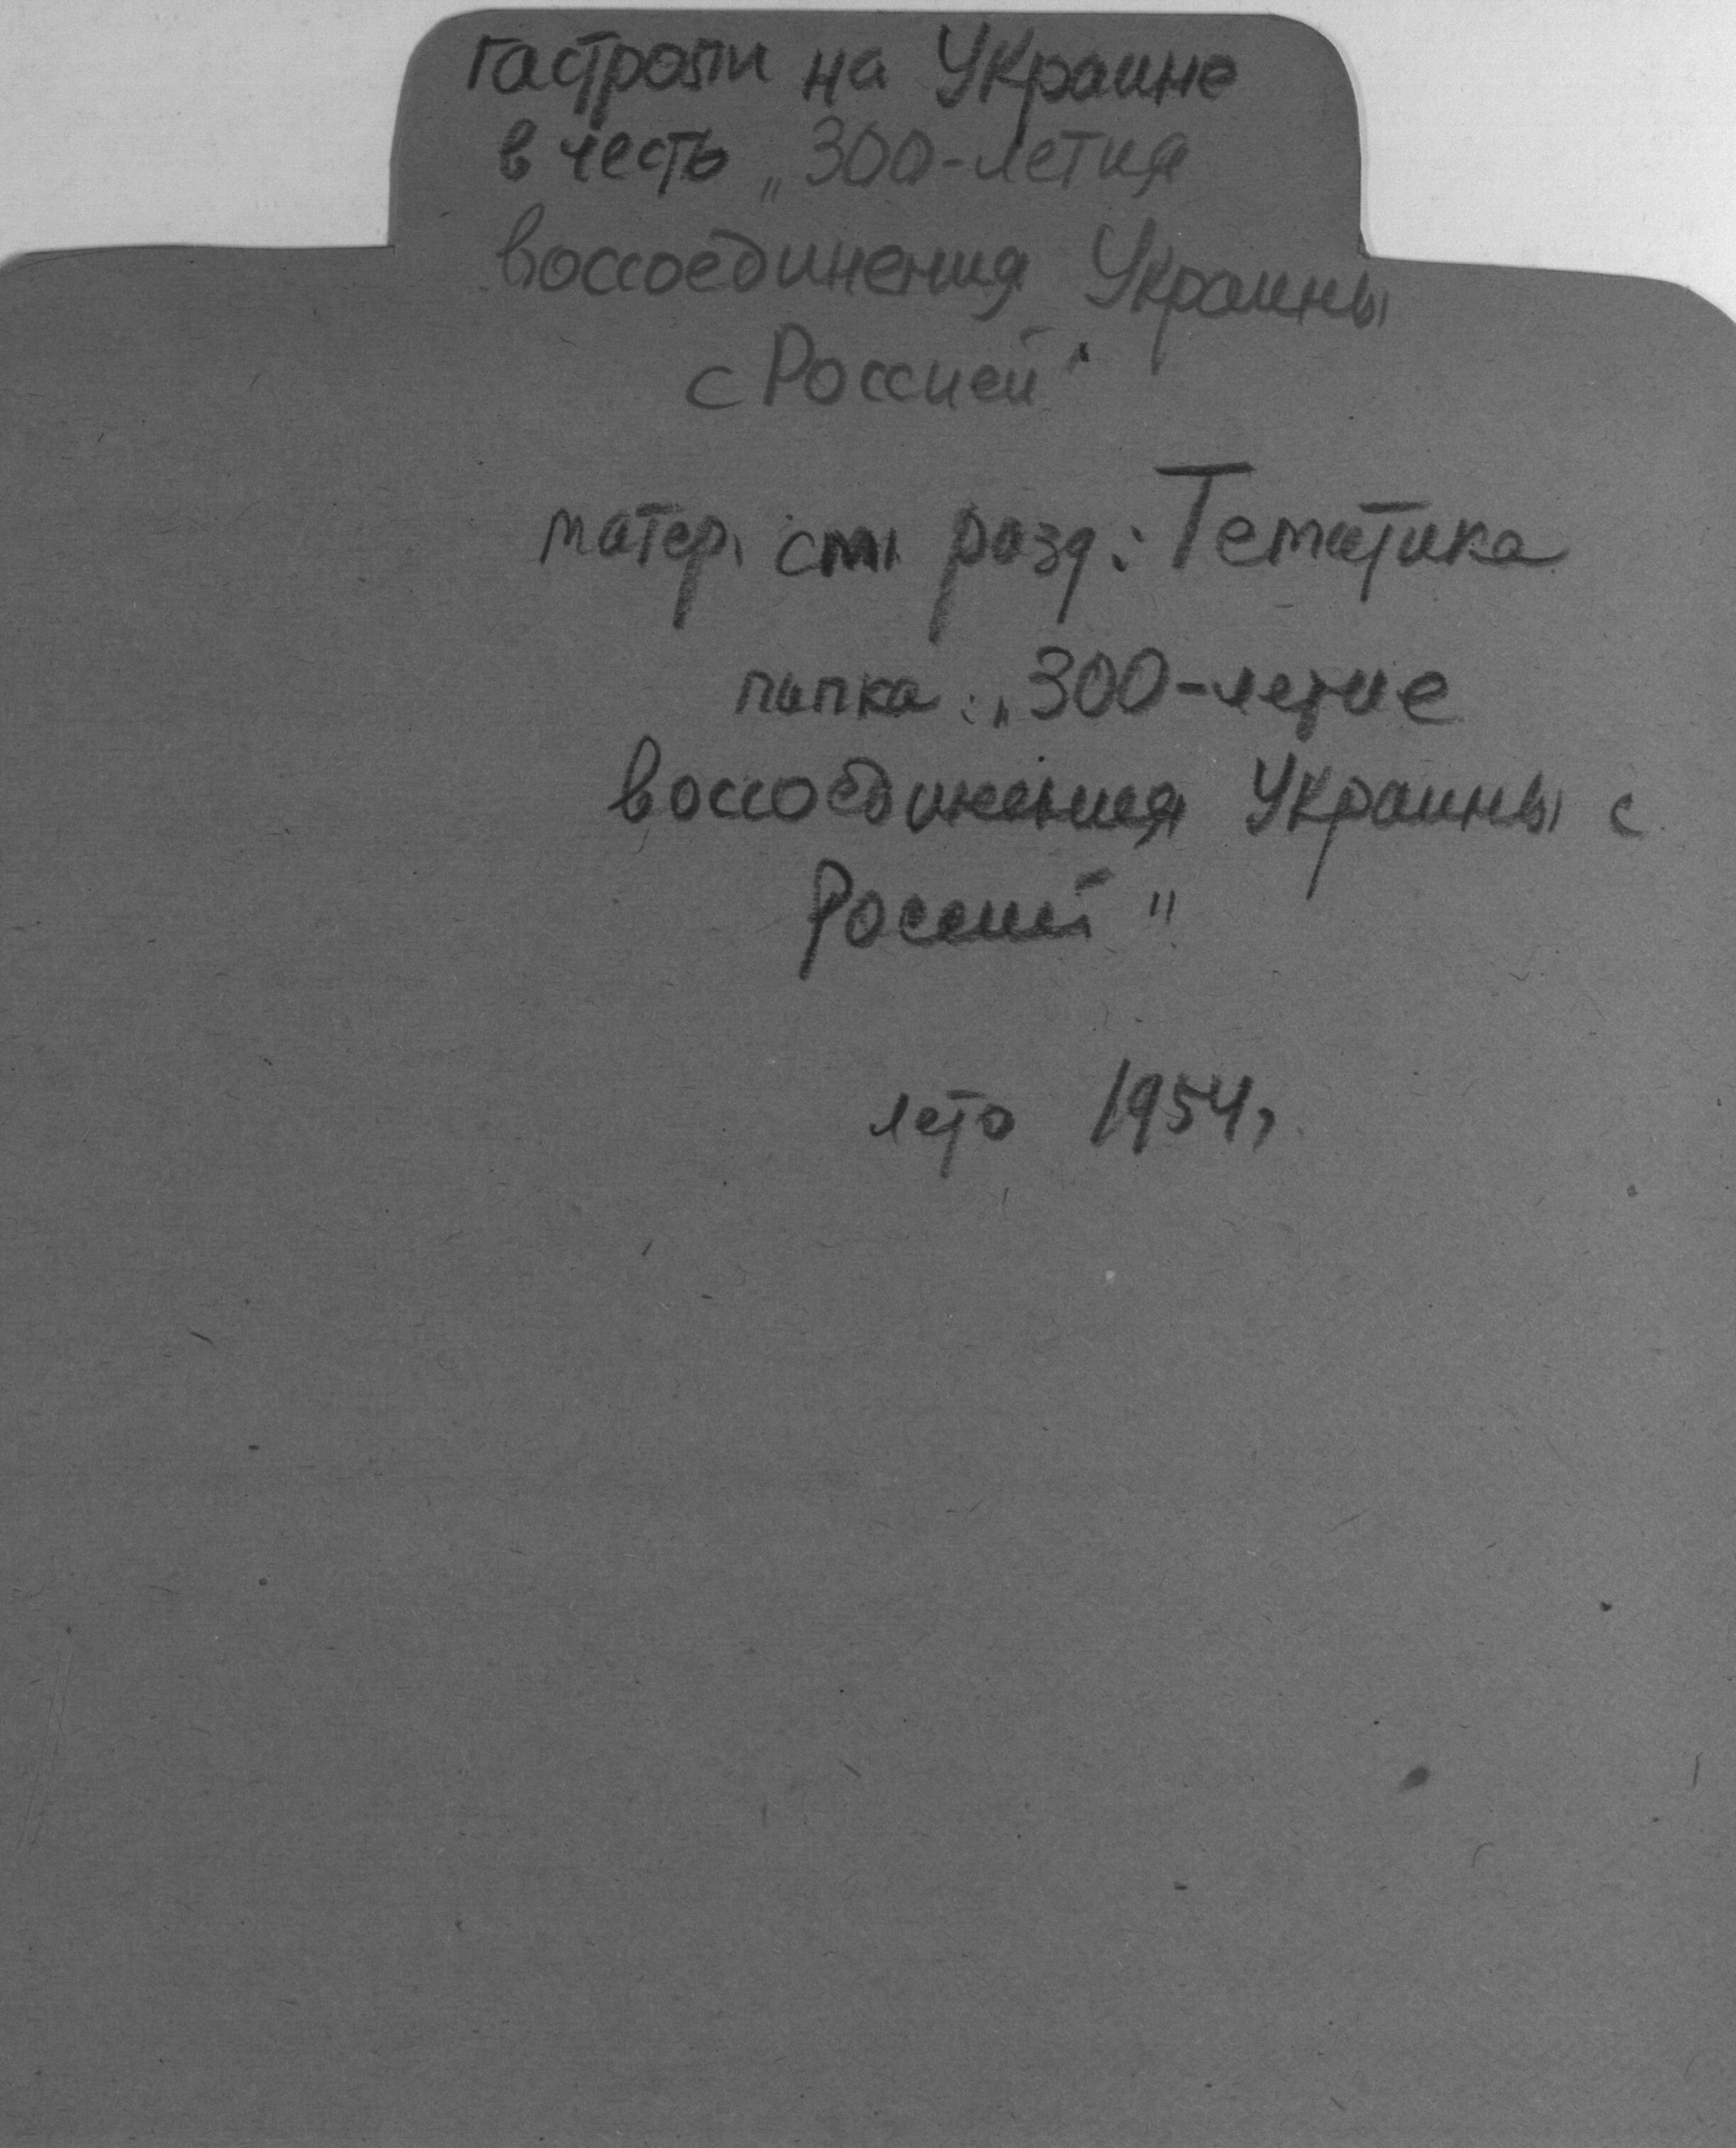 гастроли на Украине
в честь „300-летия
воссоединения Украины
с Россией"
матер. см. разд.: Тематика
папка: „300-летие
воссоединения Украины с
Россией"
лето 1954г.